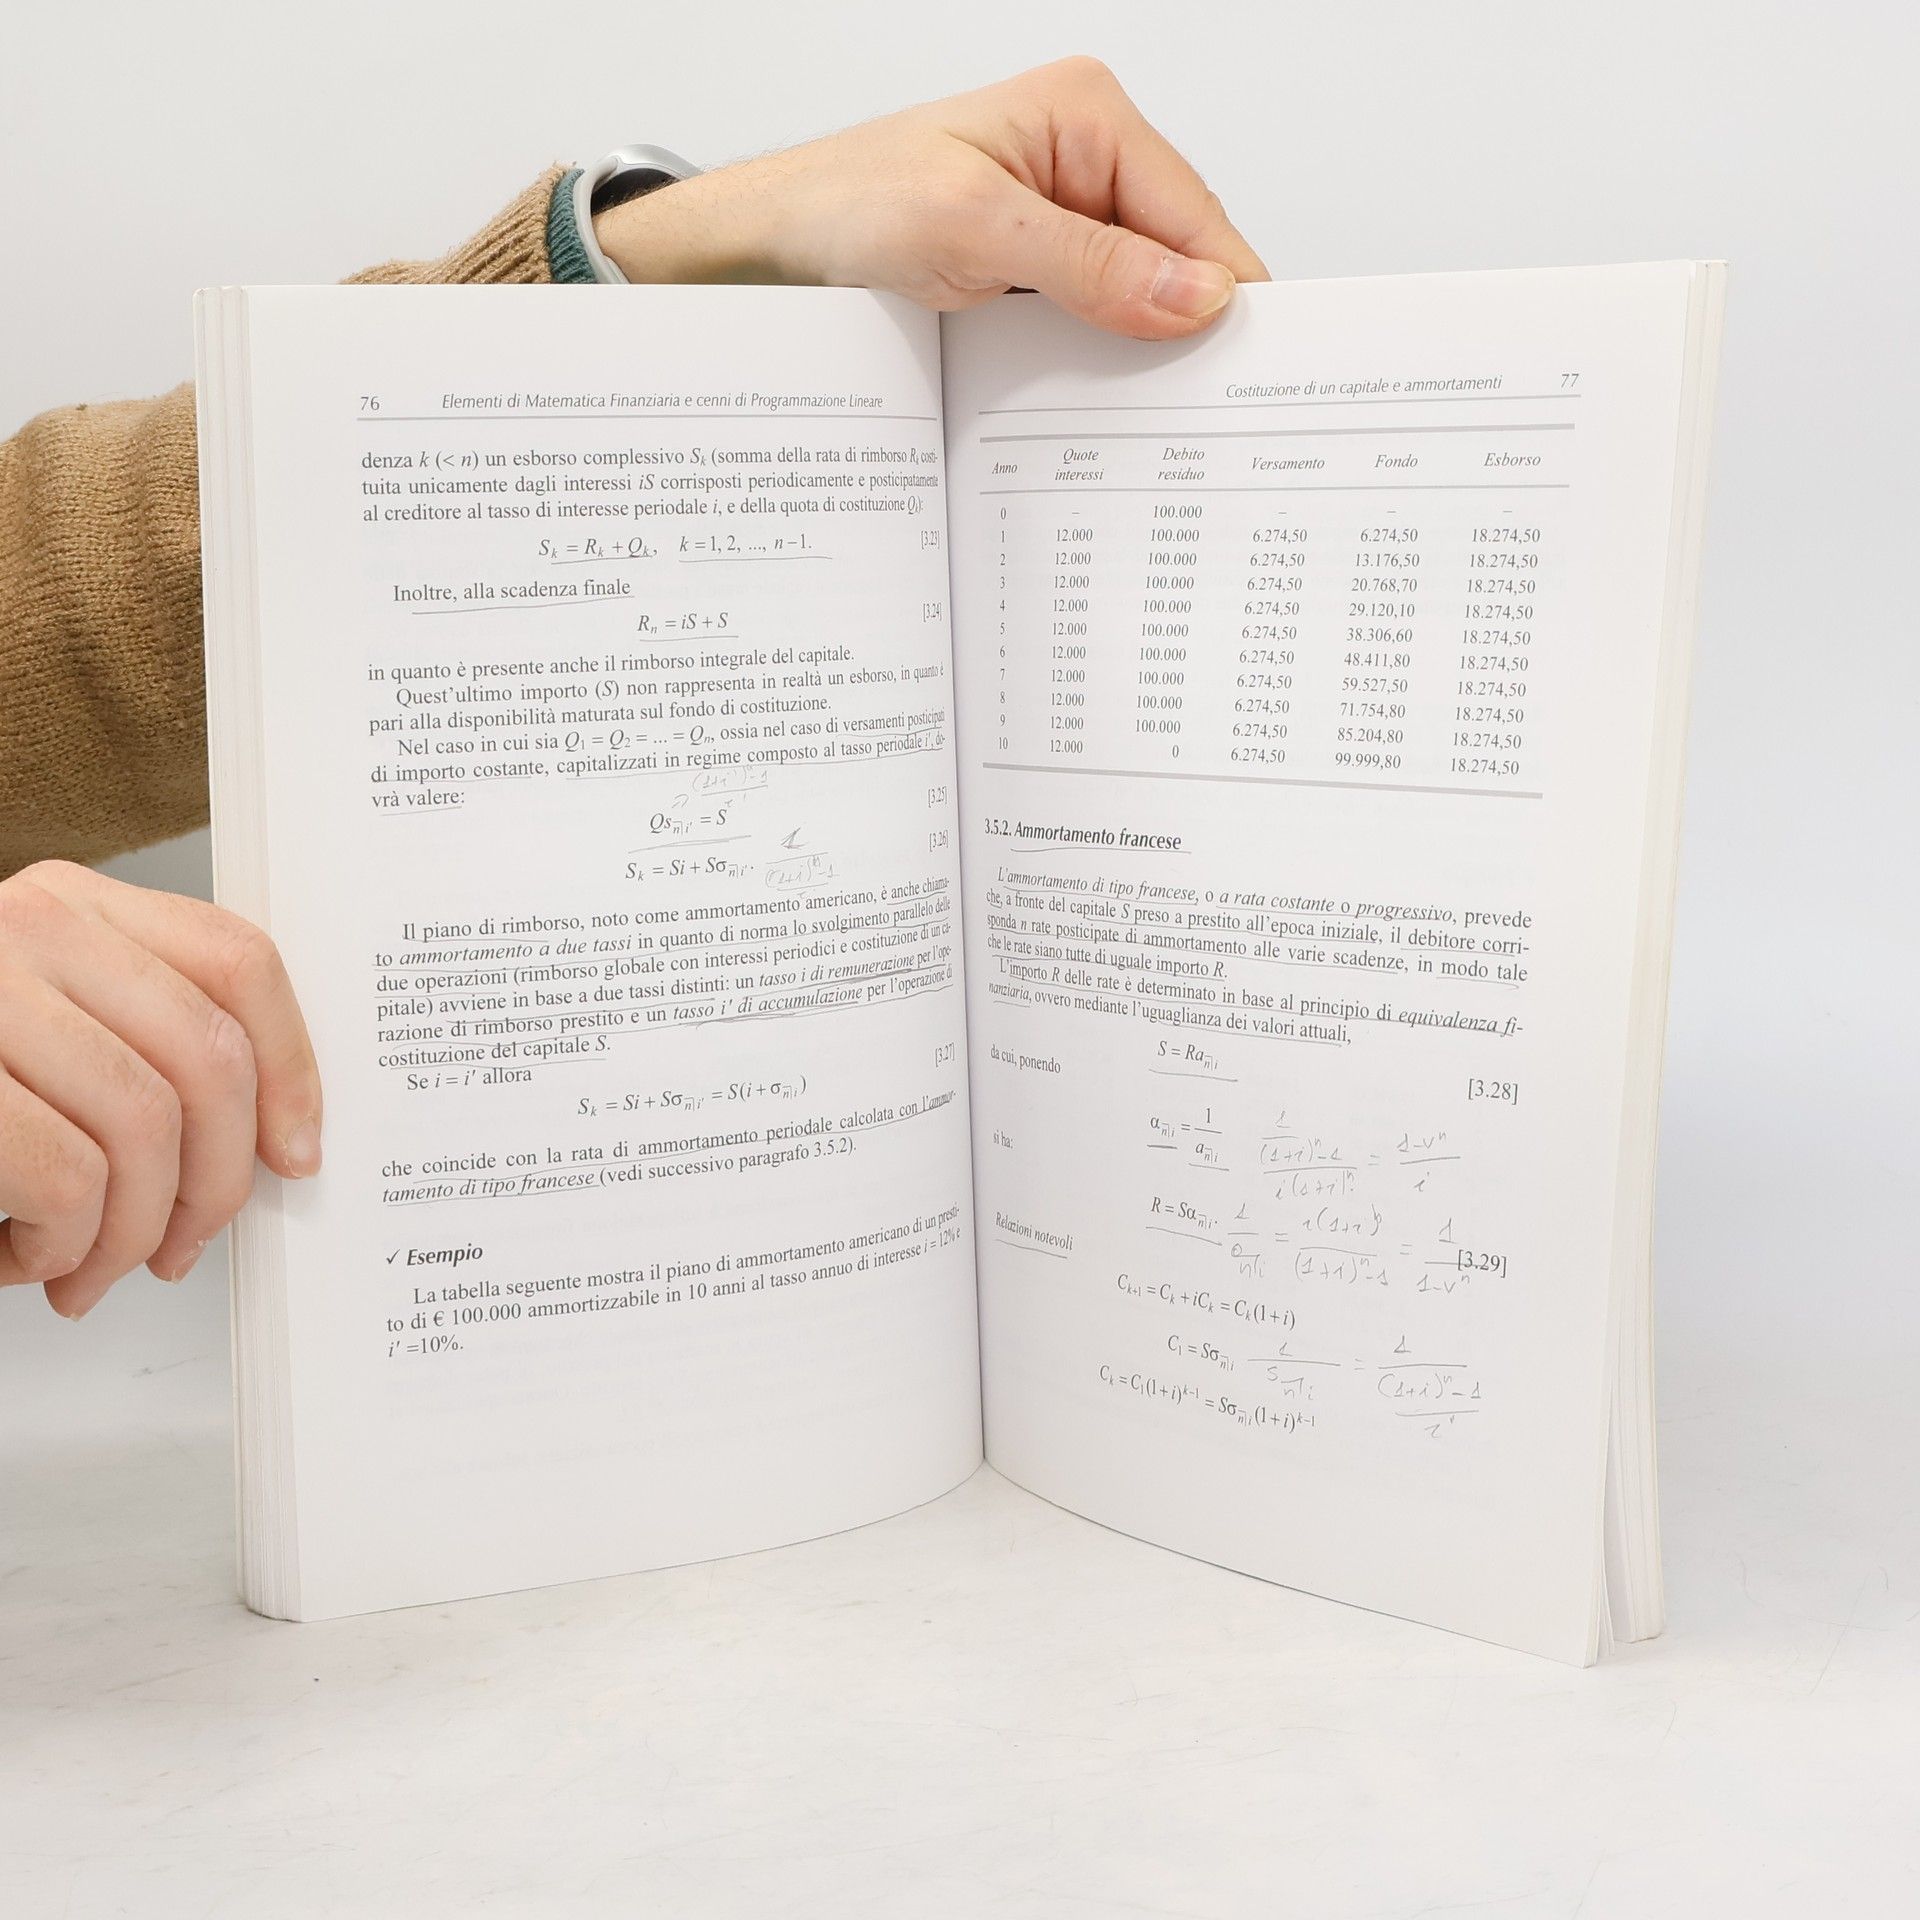 76 Elementi di Matematica Finanziaria e cenni di Programmazione Lineare
denza k (< n) un esborso complessivo Sₖ (somma della rata di rimborso Rₖ costi-
tuita unicamente dagli interessi iS corrisposti periodicamente e posticipatamente
al creditore al tasso di interesse periodale i, e della quota di costituzione Qₖ):
Sₖ = Rₖ + Qₖ, k = 1, 2, ..., n−1. [3.23]
Inoltre, alla scadenza finale
Rₙ = iS + S [3.24]
in quanto è presente anche il rimborso integrale del capitale.
Quest'ultimo importo (S) non rappresenta in realtà un esborso, in quanto è
pari alla disponibilità maturata sul fondo di costituzione.
Nel caso in cui sia Q₁ = Q₂ = ... = Qₙ, ossia nel caso di versamenti posticipati
di importo costante, capitalizzati in regime composto al tasso periodale i', do-
vrà valere:
(1+i')ⁿ-1
i'
Qs n̅|i' = S [3.25]
Sₖ = Si + Sσ n̅|i'. [3.26]
1
(1+i)ⁿ-1
Il piano di rimborso, noto come ammortamento americano, è anche chiama-
to ammortamento a due tassi in quanto di norma lo svolgimento parallelo delle
due operazioni (rimborso globale con interessi periodici e costituzione di un ca-
pitale) avviene in base a due tassi distinti: un tasso i di remunerazione per l'ope-
razione di rimborso prestito e un tasso i' di accumulazione per l'operazione di
costituzione del capitale S.
Se i = i' allora
Sₖ = Si + Sσ n̅|i' = S(i + σ n̅|i) [3.27]
che coincide con la rata di ammortamento periodale calcolata con l'ammor-
tamento di tipo francese (vedi successivo paragrafo 3.5.2).
✓ Esempio
La tabella seguente mostra il piano di ammortamento americano di un presti-
to di € 100.000 ammortizzabile in 10 anni al tasso annuo di interesse i = 12% e
i' =10%.
Costituzione di un capitale e ammortamenti 77
Anno Quote interessi Debito residuo Versamento Fondo Esborso
0 – 100.000 – – –
1 12.000 100.000 6.274,50 6.274,50 18.274,50
2 12.000 100.000 6.274,50 13.176,50 18.274,50
3 12.000 100.000 6.274,50 20.768,70 18.274,50
4 12.000 100.000 6.274,50 29.120,10 18.274,50
5 12.000 100.000 6.274,50 38.306,60 18.274,50
6 12.000 100.000 6.274,50 48.411,80 18.274,50
7 12.000 100.000 6.274,50 59.527,50 18.274,50
8 12.000 100.000 6.274,50 71.754,80 18.274,50
9 12.000 100.000 6.274,50 85.204,80 18.274,50
10 12.000 0 6.274,50 99.999,80 18.274,50
3.5.2. Ammortamento francese
L'ammortamento di tipo francese, o a rata costante o progressivo, prevede
che, a fronte del capitale S preso a prestito all'epoca iniziale, il debitore corri-
sponda n rate posticipate di ammortamento alle varie scadenze, in modo tale
che le rate siano tutte di uguale importo R.
L'importo R delle rate è determinato in base al principio di equivalenza fi-
nanziaria, ovvero mediante l'uguaglianza dei valori attuali,
S = Ra n̅|i
da cui, ponendo [3.28]
α n̅|i = 1 / a n̅|i
1 / (1+i)ⁿ-1 / i(1+i)ⁿ = 1-vⁿ / i
si ha:
R = Sα n̅|i. 1 / a n̅|i = i(1+i)ⁿ / (1+i)ⁿ-1 = 1 / 1-vⁿ [3.29]
Relazioni notevoli
Cₖ₊₁ = Cₖ + iCₖ = Cₖ(1 + i)
C₁ = Sσ n̅|i 1 / s n̅|i = 1 / (1+i)ⁿ-1 / i
Cₖ = C₁(1 + i)ᵏ⁻¹ = Sσ n̅|i (1 + i)ᵏ⁻¹